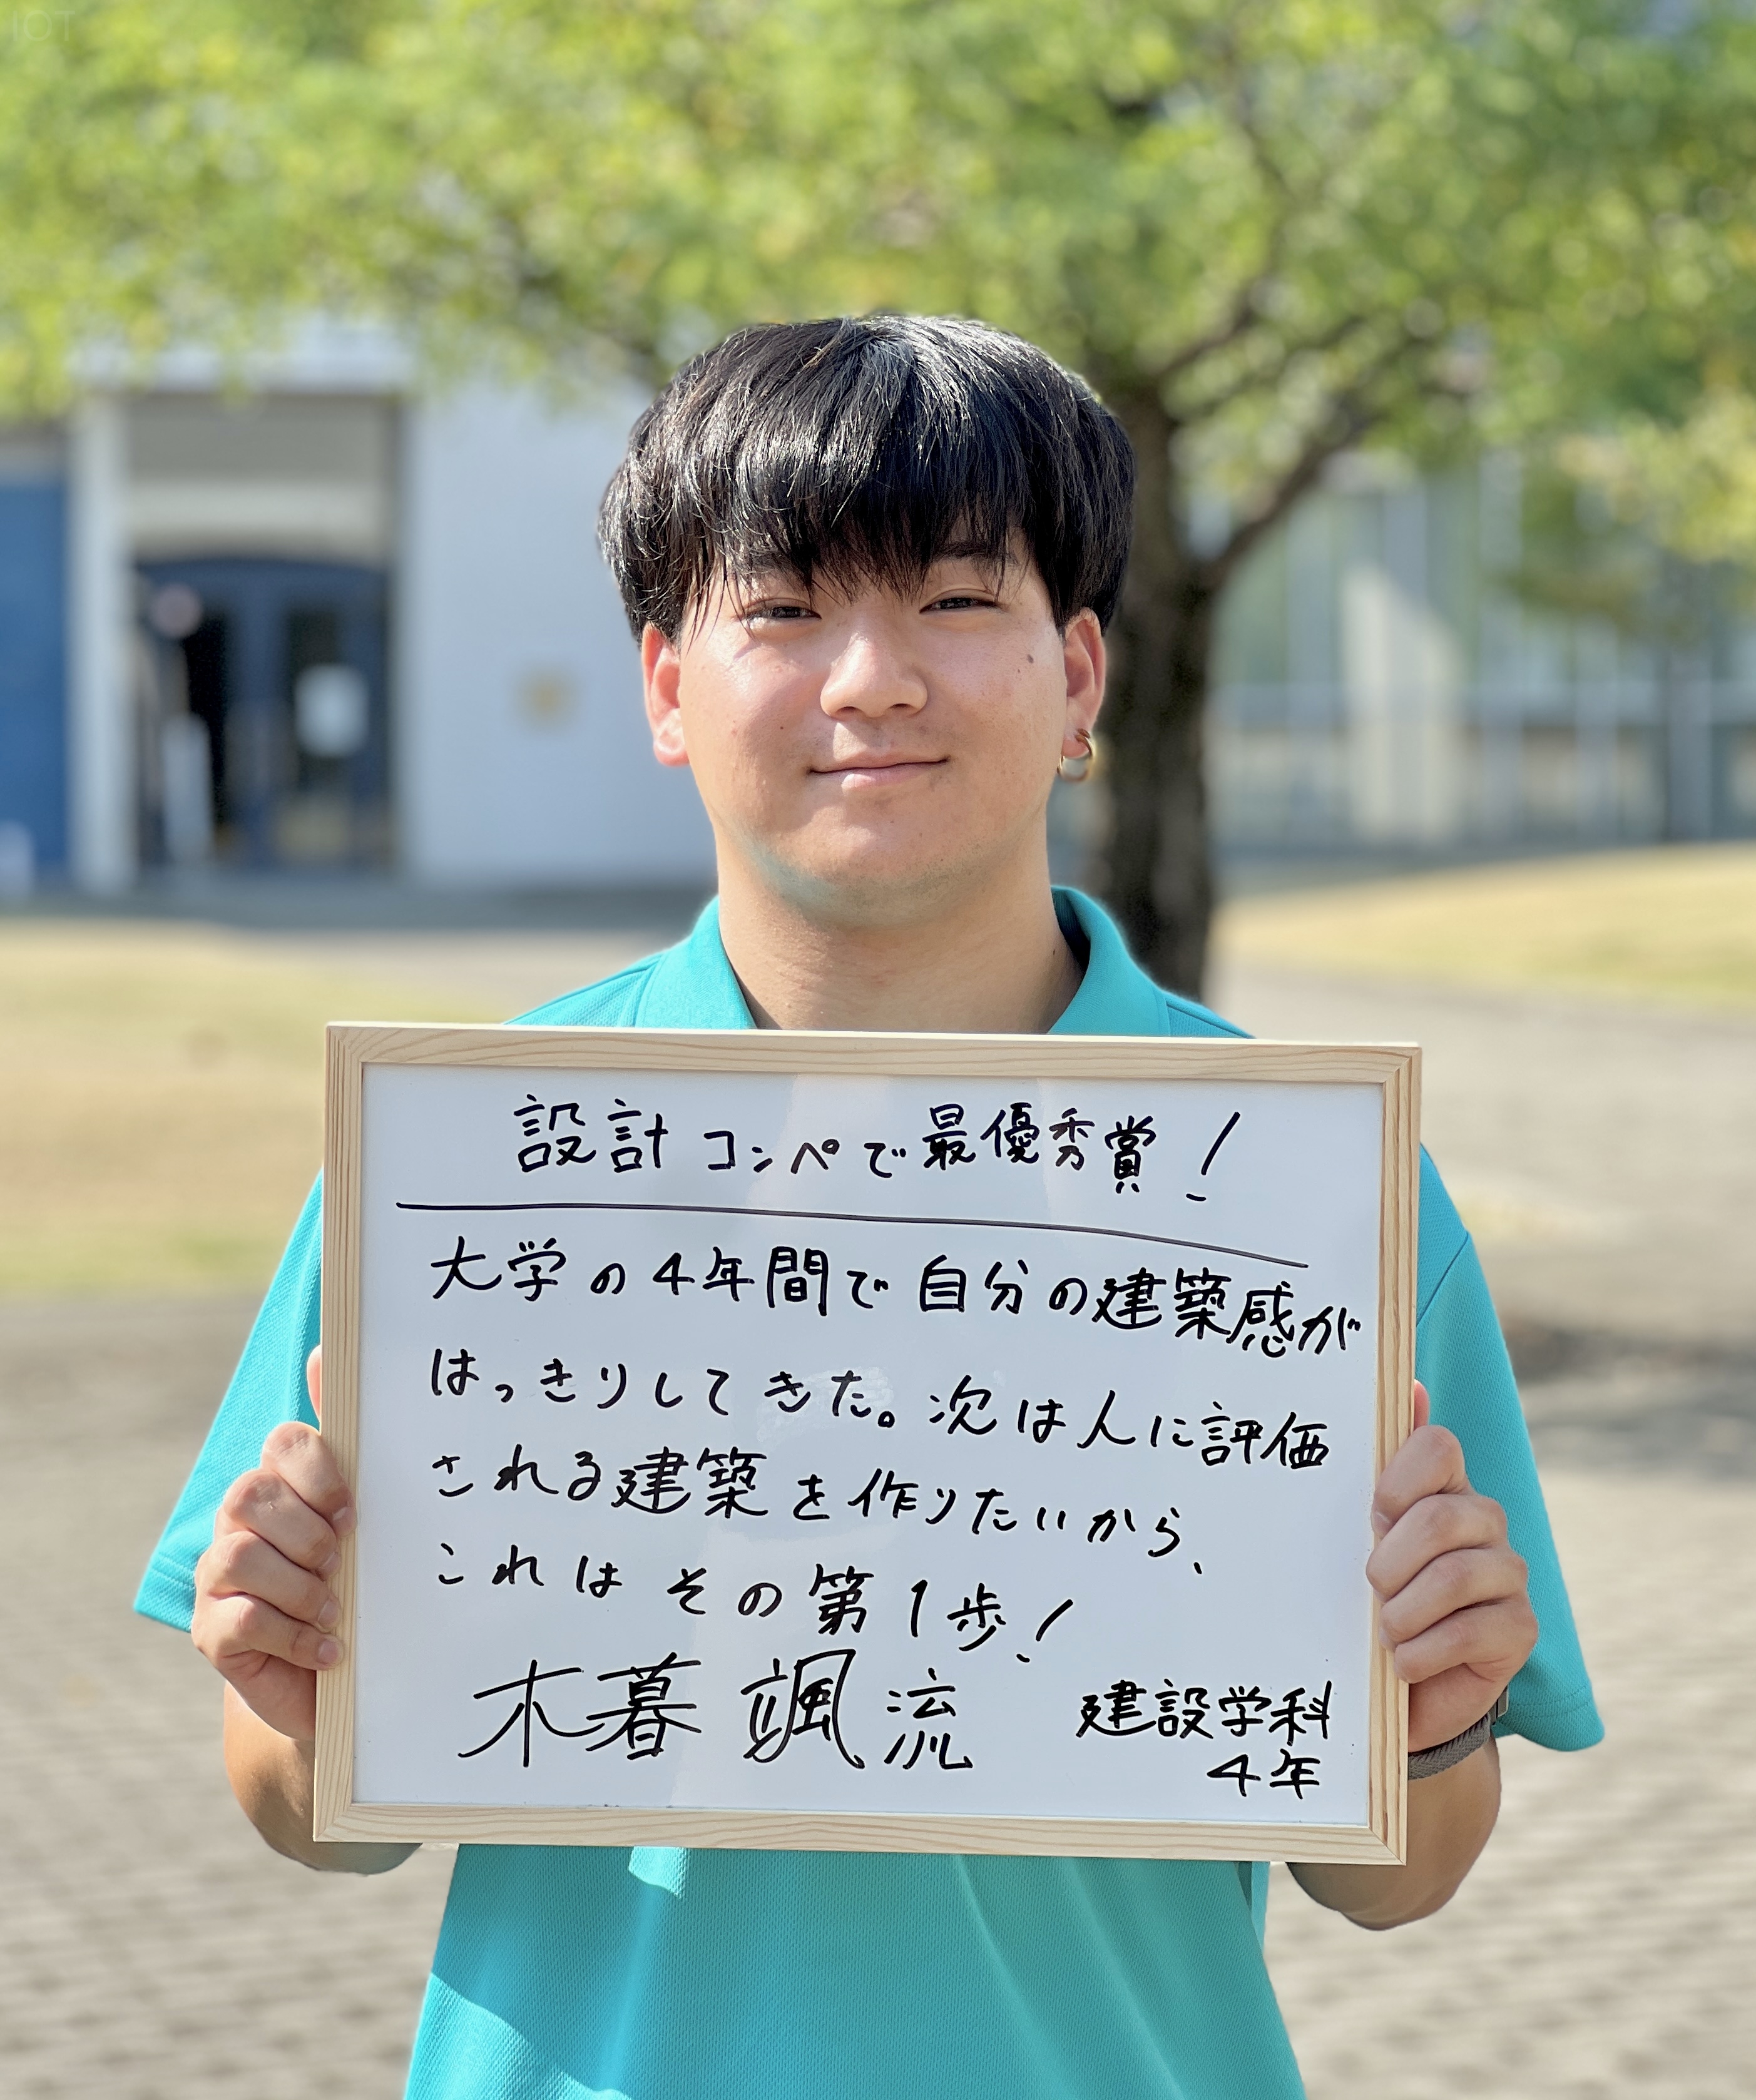 IOT
設計コンペで最優秀賞!
大学の4年間で自分の建築感が
はっきりしてきた。次は人に評価
される建築を作りたいから、
これはその第1歩!
木暮 颯流
建設学科
4年